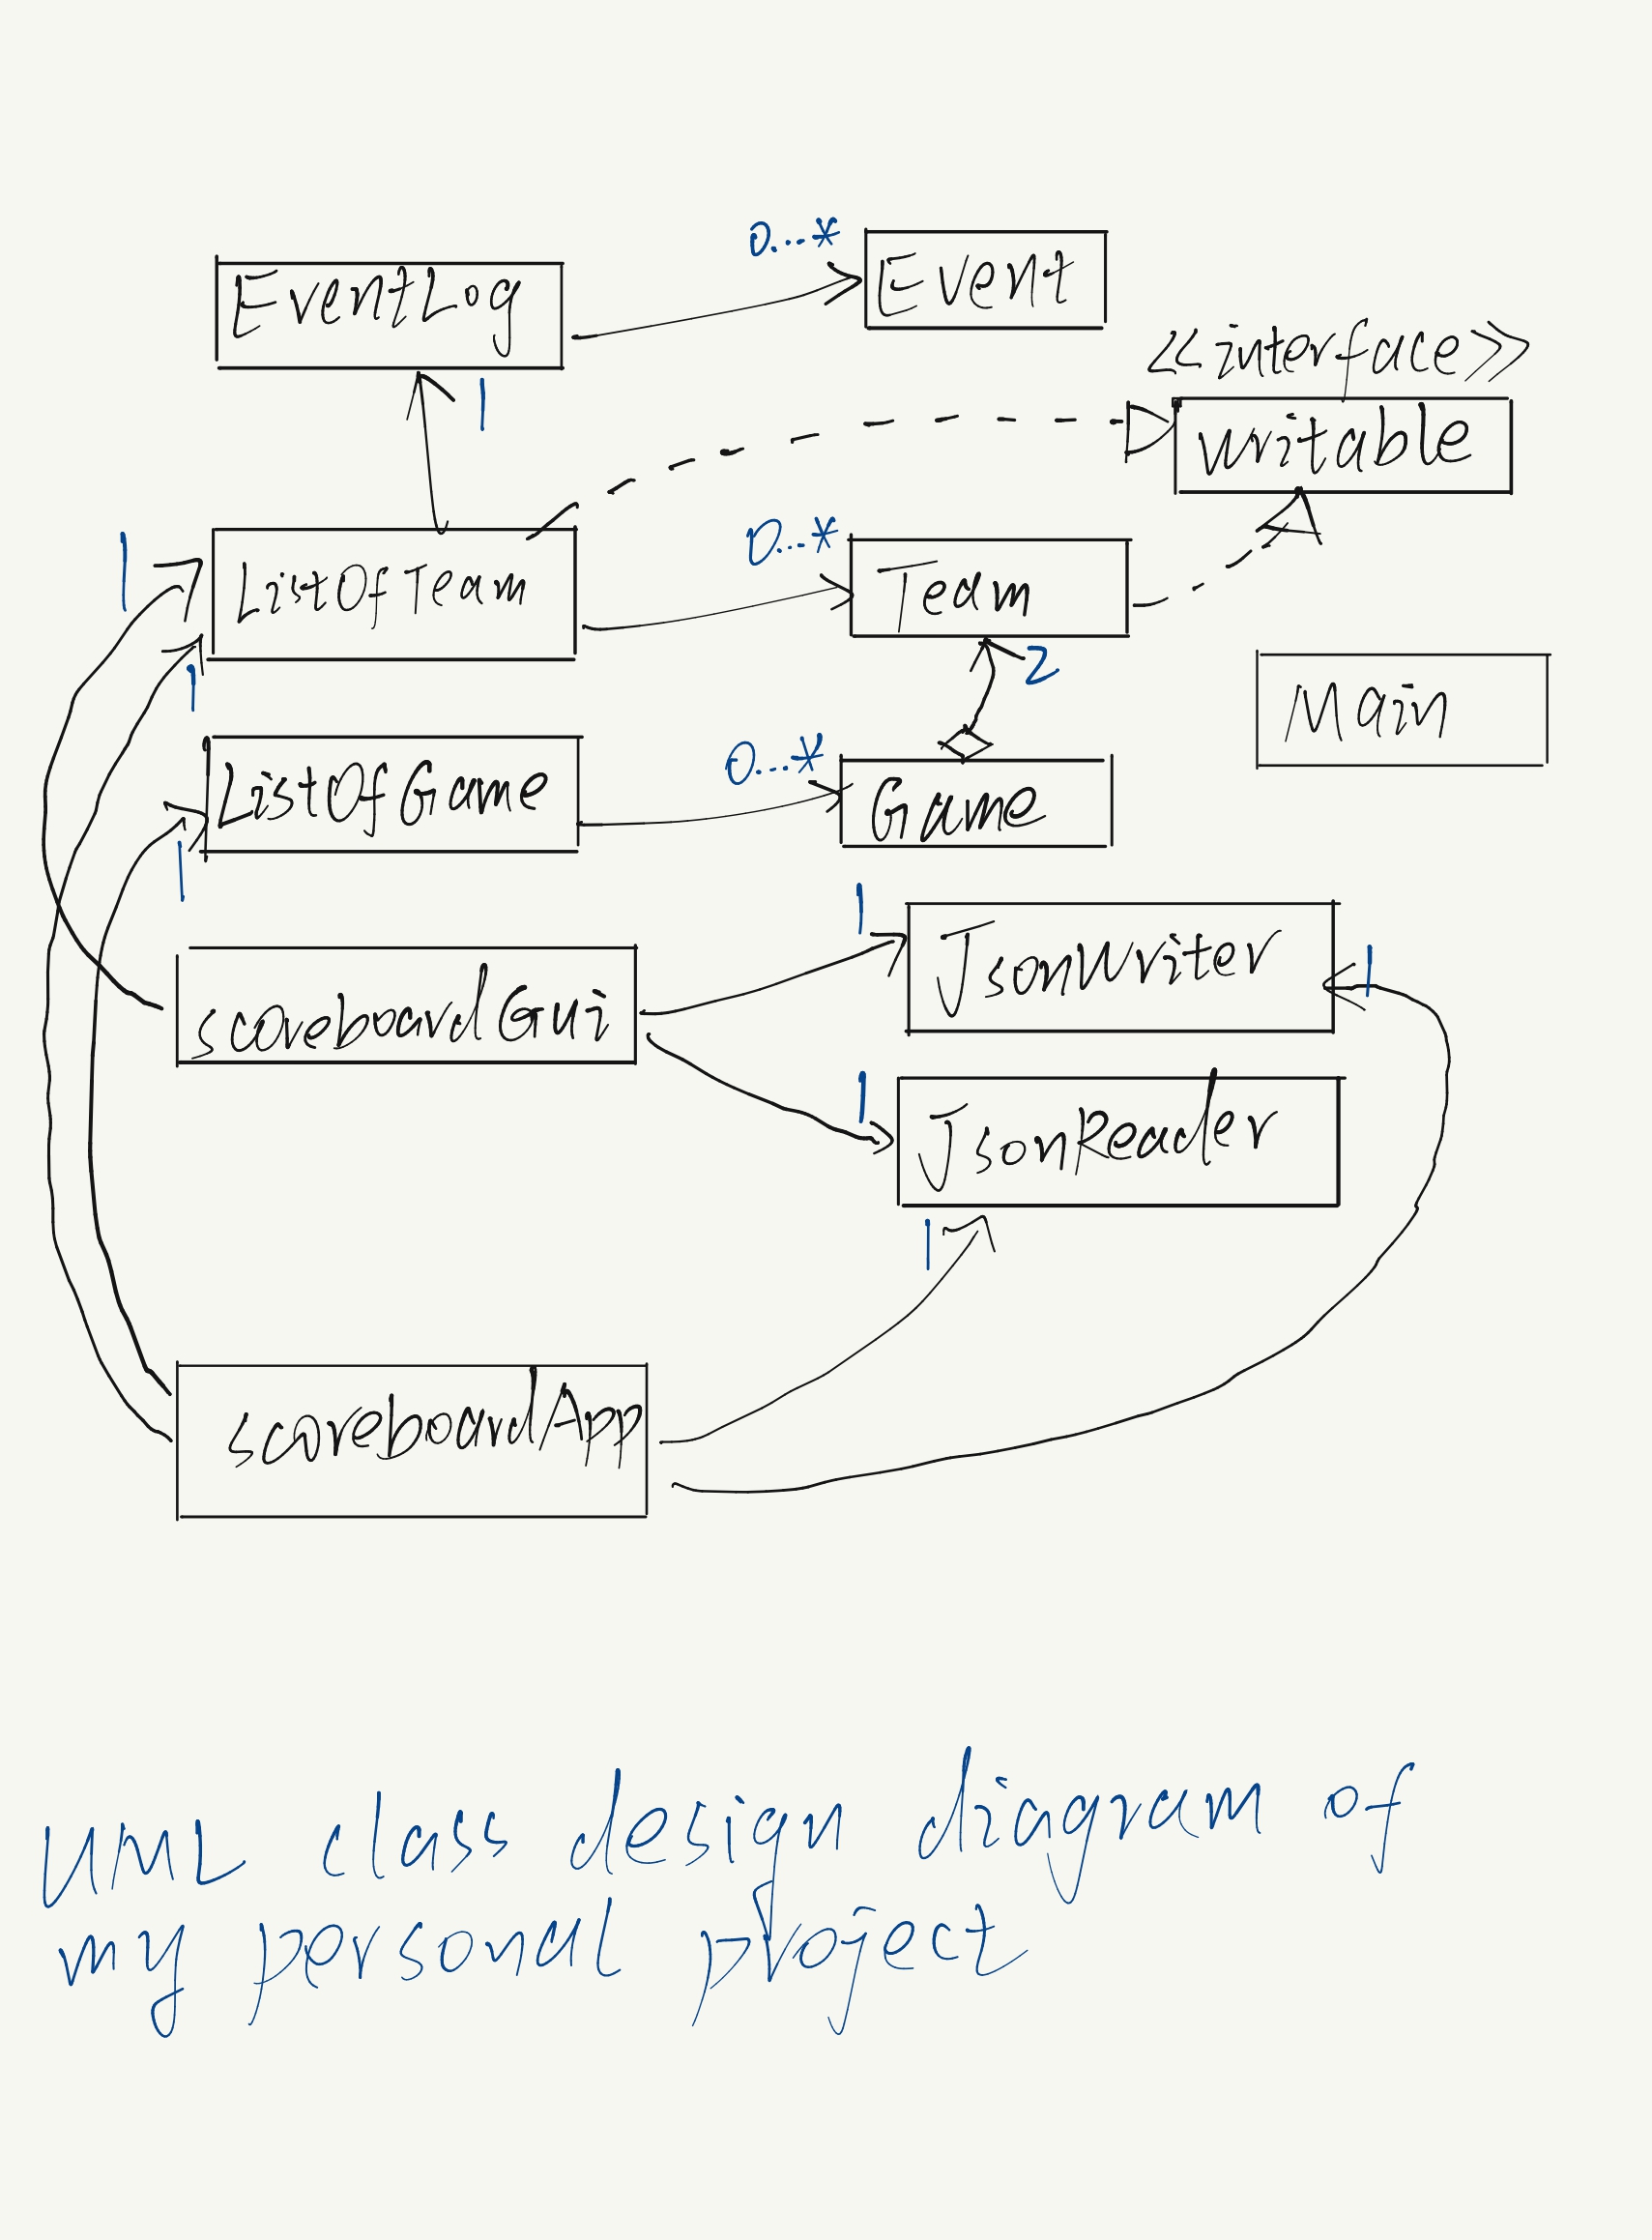 0...*
EventLog
Event
<<interface>>
1
writable
0...*
1
ListOfTeam
Team
2
1
Main
0...*
ListOfGame
Game
1
1
JsonWriter
1
scoreboardGui
1
JsonReader
1
scoreboardApp
UML class design diagram of
my personal project